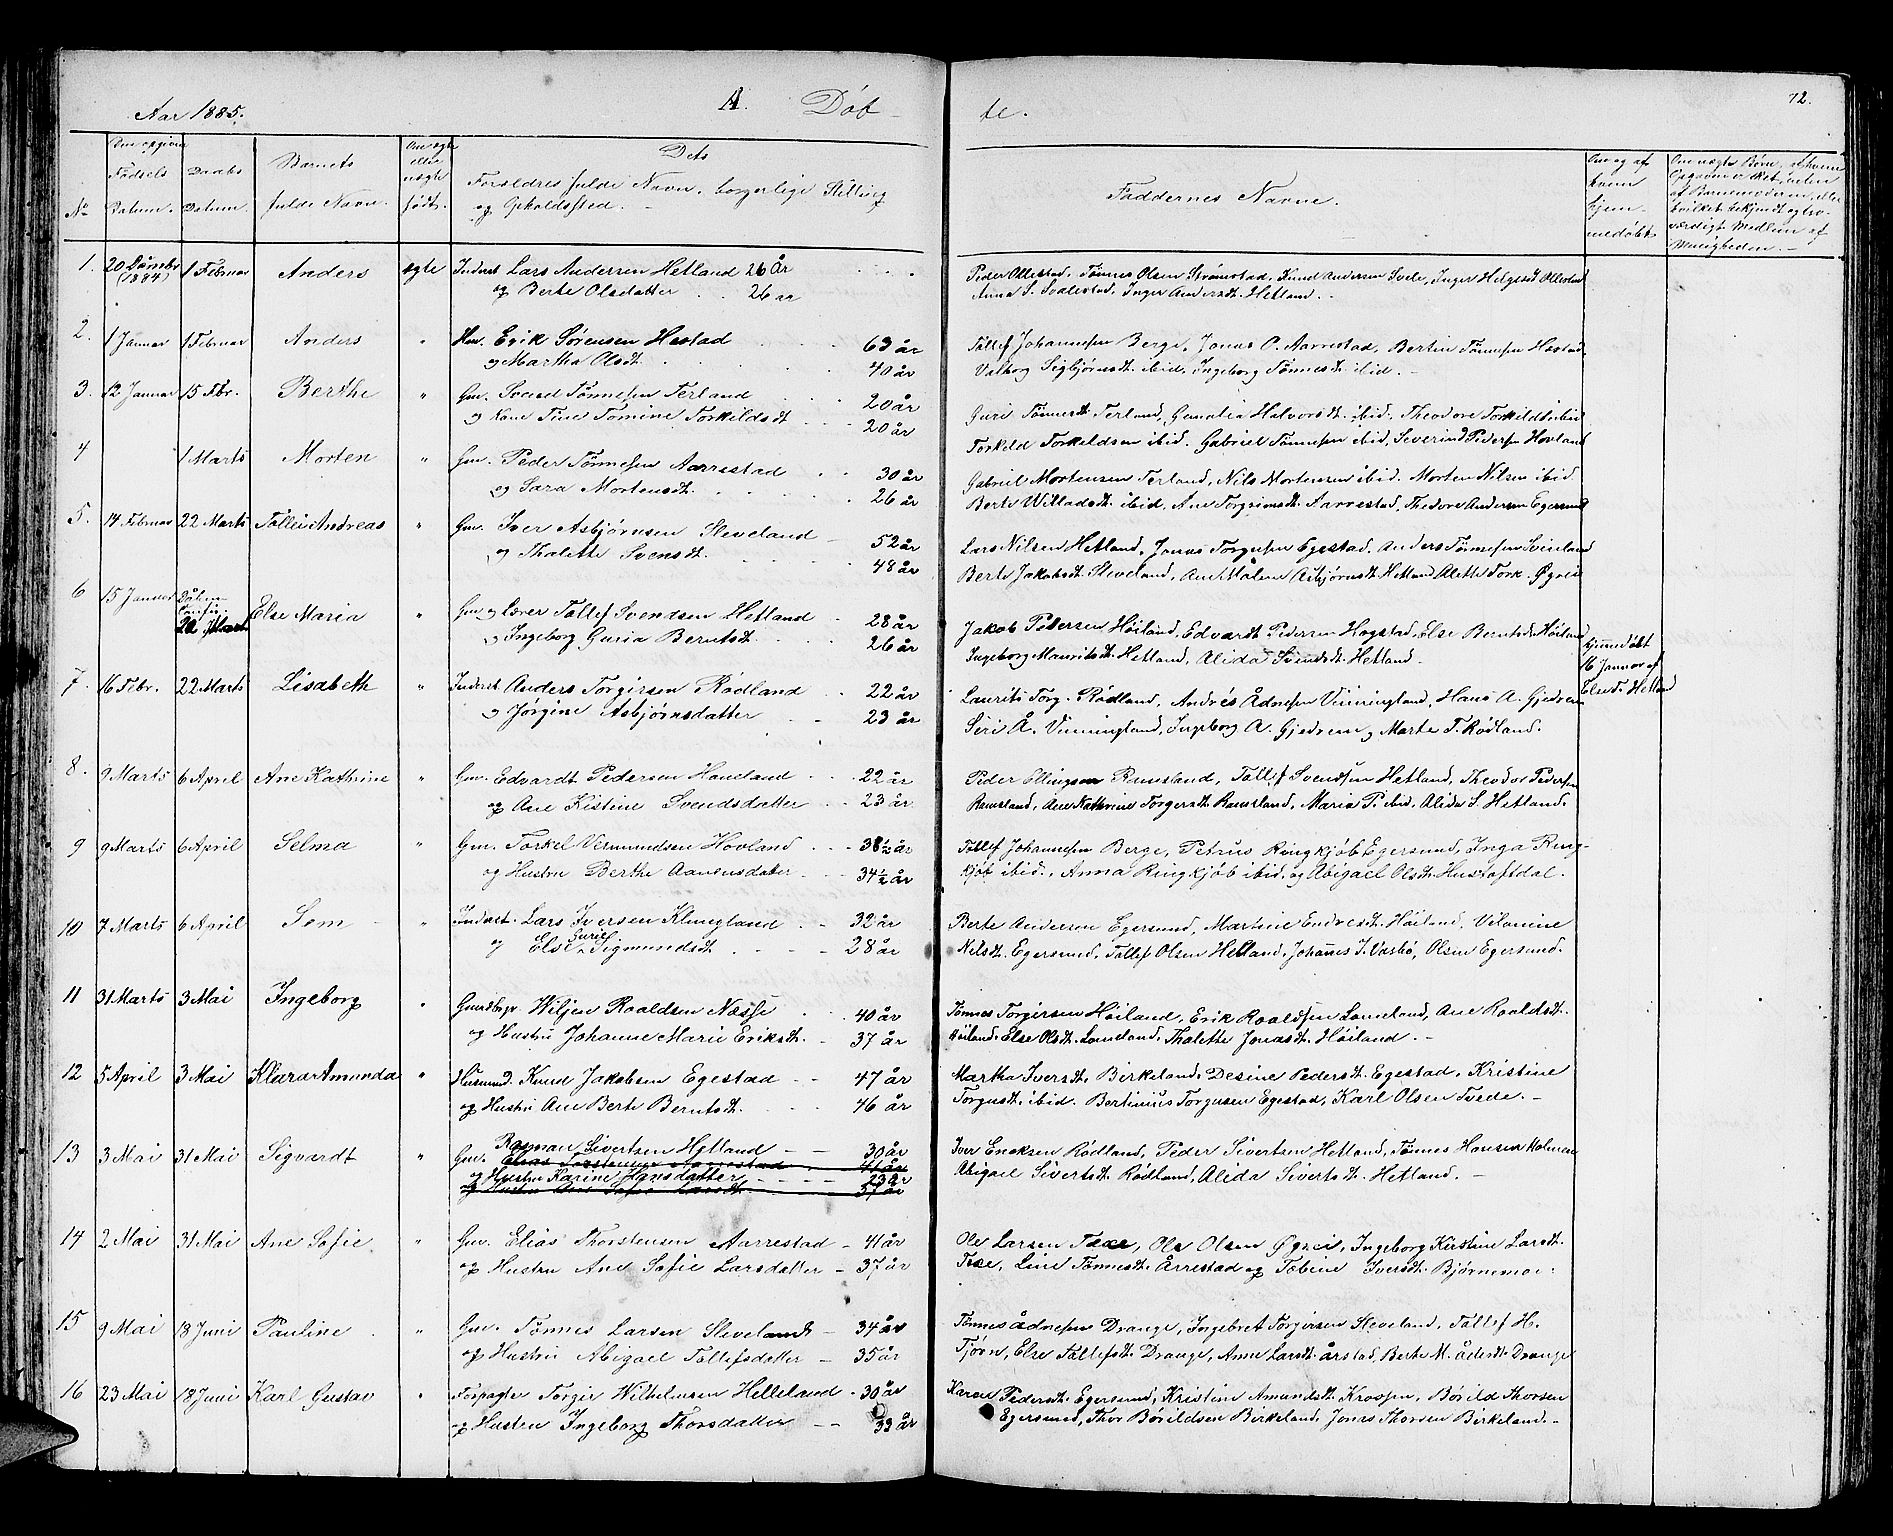 Aar 1885. A. Døb- te. 72.
No
Den opgivne Fødsels Datum.
Daabs Datum.
Barnets fulde Navn.
Om ægte eller uægte født.
Dets Forældres fulde Navn, borgerlige Stilling og Opholdssted.
Faddernes Navne.
Om og af hvem hjemmedøbt
Om uægte Børn, af hvem
1. 20 Dcmbr (1884) 1 Februar Anders ægte Inderst Lars Andersen Hetland 26 År
og Berte Olsdatter 26 år
Peder Ollestad, Tønnes Olsen Strømstad, Knud Andersen Svele, Inger Helgesdt Ollestad
Anna S. Svalestad, Inger Andersdt. Hetland.
2. 1 Januar 1 Februar Anders " Gm. Erik Sørensen Hestad 63 år
og Martha Olsdt. 40 år
Tollef Johannesen Berge, Jonas O. Aarrestad, Bertin Tønnesen Hæstad
Valborg Sigbjørnsdt. ibid, Ingeborg Tønnesdt. ibid.
3. 12 Januar 15 Fbr. Berthe " Gm. Svend Tønnesen Terland 20 år
og Kone Tine Tomine Torkildsdt 20 år
Guri Tønnesdt Terland, Gunalia Halvorsdt. ibid, Theodore Torkildsdt ibid
Torkild Torkildsen ibid. Gabriel Tønnesen ibid, Severine Pedersen Hovland
4 1 Marts Morten " Gm. Peder Tønnesen Aarrestad 30 år
og Sara Mortensdt. 26 år
Gabriel Mortensen Terland, Nils Mortensen ibid. Morten Nilsen ibid.
Berte Willadsdt ibid, Ane Torgrimsdt. Aarrestad, Thedore Andersen Egersund
5. 14 Februar 22 Marts Tollef Andreas " Gm. Iver Asbjørnsen Sleveland 52 år
og Thalette Svensdt. 48 år
Lars Nilsen Hetland, Jonas Torgersen Egestad, Anders Tønnesen Sviland
Berte Jakobsdt. Sleveland, Ane Målene Asbjørnsdt. Hetland Alette Tork. Øgreie
6 15 Januar 22 Mart. Else Maria " Gm og Lærer Tollef Svendsen Hetland 28 år
og Ingeborg Guria Berntsdt. 26 år
Jakob Pedersen Høiland, Edvardt Pedersen Hogstad, Else Berntsdt. Høiland
Ingeborg Mauritsdt. Hetland, Alida Svendsdt. Hetland.
hjemmedøbt
16 Januar af
Else T. Hetland
7. 16 Febr. 22 Marts Lisabeth " Inderst Anders Torgirsen Rødland 22 år
og Jørgine Asbjørnsdatter 23 år
Laurits Torg. Rødland, Andreas Ådnesen Vinningland, Hans A. Gjedrem
Siri Å. Vinningland, Ingeborg A. Gjedrem og Marte T. Rødland.
8. 9 Marts 6 April Ane Kathrine " Gm. Edvardt Pedersen Haneland 22 år
og Ane Kistine Svendsdatter 23 år
Peder Ellingsen Ramsland, Tollef Svendsen Hetland, Theodor Pedersen
Ramsland, Ane Kathrine Torgersdt Ramsland, Maria P. ibid, Alida S. Hetland.
9 9 Marts 6 April Selma " Gm. Torkel Vermundsen Hovland 38½ år
og Hustru Berthe Aanensdatter 34½ år
Tollef Johannesen Berge, Petrus Ringkjøb Egersund, Inga Ring-
kjøb ibid., Anna Ringkjøb ibid. og Abigael Olsdt. Hustoftdal.
10 7 Marts 6 April Sem " Inderst. Lars Iversen Klungland 32 år
og Else Gurie Sigmundsdt 28 år
Berte Andersen Egersund, Martine Endresdt. Høiland, Vilamine
Nilsdt. Egersund, Tollef Olsen Hetland, Johanes I. Vasbø, Olsen Egersund.
11 31 Marts 3 Mai Ingeborg " Gaardbgr Wiljen Roaldsen Næsse 40 år
og Hustru Johanne Marie Eriksdt. 37 år
Tønnes Torgirsen Høiland, Erik Roaldsen Lomeland, Ane Roaldsdt.
Høiland, Else Olsdt. Lomeland, Thalette Jonasdt. Høiland.
12 5 April 3 Mai Klara Amanda " Husmnd. Knud Jakobsen Egestad 47 år
og Hustru Ane Berte Berntsdt. 46 år
Martha Iversdt. Birkeland, Desine Pedersdt. Egestad, Kristine
Torgusdt. ibid. Bertinius Torgusen Egestad, Karl Olsen Tvede.
13 3 Mai 31 Mai Sigvardt " Gm. Rasmus Sivertsen Hetland 30 år
Elias Torstensen Aarrestad 41 år
og Hustru Karine Hansdatter 23 år
og Hustru Ane Sofie Larsdt. 37 år
Iver Eneksen Rødland, Peder Sivertsen Hetland, Tønnes Hansen Holmen
Abigael Sivertsdt. Rødland, Alida Sivertsdt. Hetland.
14 2 Mai 31 Mai Ane Sofie " Gm. Elias Thorstensen Aarrestad 41 år
og Hustru Ane Sofie Larsdatter 37 år
Ole Larsen Texe, Ole Olsen Øgrei, Ingeborg Kirstine Larsdt.
Texe, Line Tønnesdt. Årrestad og Tobine Iversdt. Bjørnemoe.
15 9 Mai 18 Juni Pauline " Gm. Tønnes Larsen Sleveland 34 år
og Hustru Abigael Tollefsdatter 35 år
Tønnes Ådnesen Drange, Ingebret Torgirsen Sleveland, Tollef H.
Tjørn, Else Tollefsdt. Drange, Anne Larsdt. Årstad, Berte M. Ådesdt. Drange
16 23 Mai 18 Juni Karl Gustav " Forpagter Torgir Wilhelmsen Helleland 30 år
og Hustru Ingeborg Thorsdatter 33 år
Karen Pedersdt Egersund, Kristine Amundsdt. Krossen, Bårild Thorsen
Egersund, Thor Børildsen Birkeland, Jonas Thorsen Birkeland.